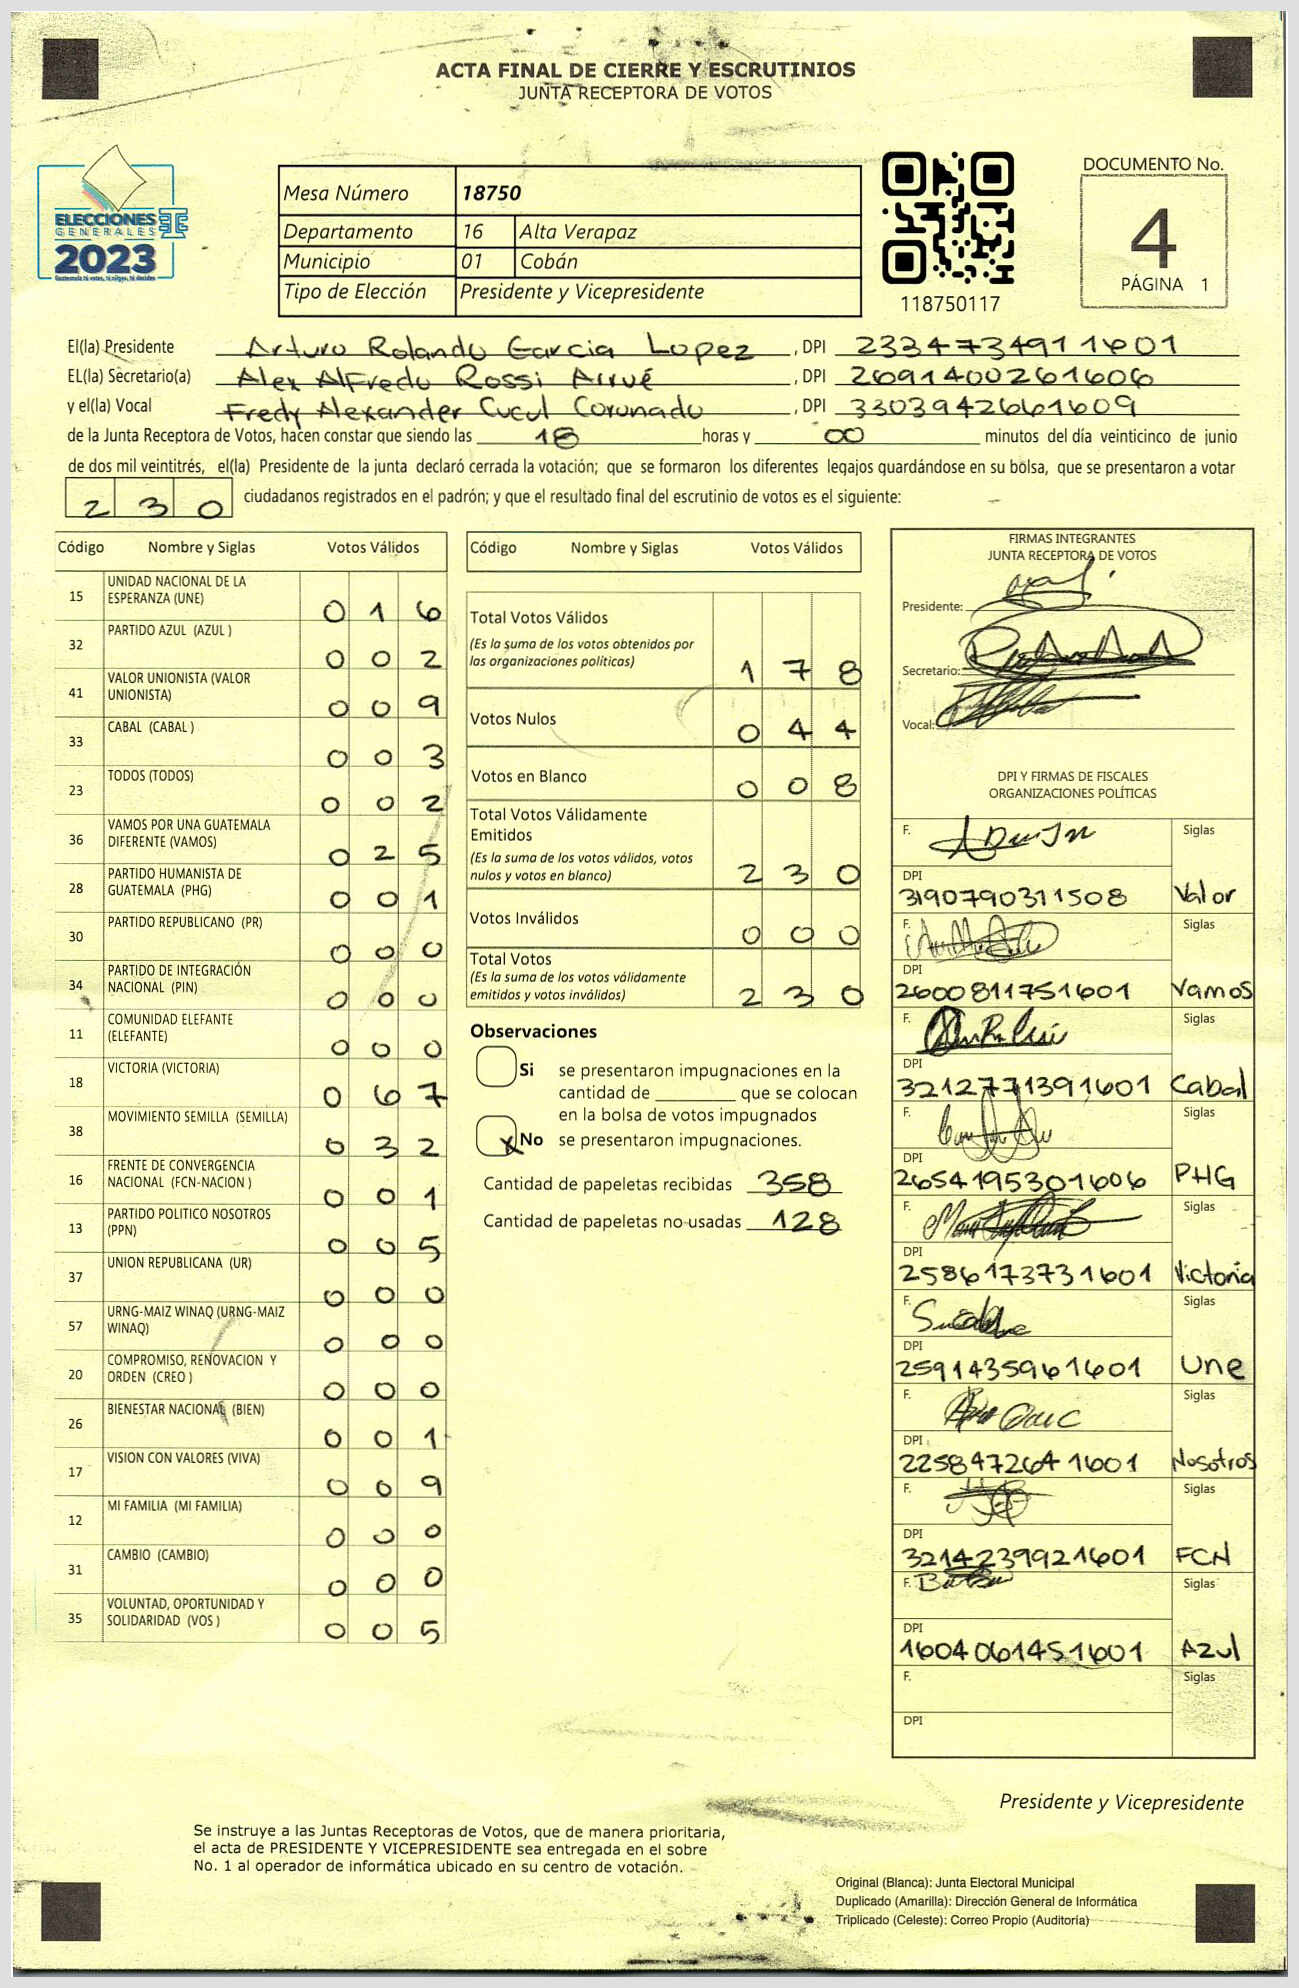 ACTA FINAL DE CIERRE Y ESCRUTINIOS
JUNTA RECEPTORA DE VOTOS
ELECCIONES
GENERALES
2023
Mesa Número 18750
Departamento 16 Alta Verapaz
Municipio 01 Cobán
Tipo de Elección Presidente y Vicepresidente
118750117
DOCUMENTO No.
4
PÁGINA 1
El(la) Presidente Arturo Rolando Garcia Lopez , DPI 2334734911601
EL(la) Secretario(a) Alex Alfredo Rossi Arrué , DPI 2691400261606
y el(la) Vocal Fredy Alexander Cucul Coronado , DPI 3303942661609
de la Junta Receptora de Votos, hacen constar que siendo las 18 horas y 00 minutos del día veinticinco de junio
de dos mil veintitrés, el(la) Presidente de la junta declaró cerrada la votación; que se formaron los diferentes legajos guardándose en su bolsa, que se presentaron a votar
230 ciudadanos registrados en el padrón; y que el resultado final del escrutinio de votos es el siguiente:
Código Nombre y Siglas Votos Válidos
15 UNIDAD NACIONAL DE LA ESPERANZA (UNE) 0 1 6
32 PARTIDO AZUL (AZUL ) 0 0 2
41 VALOR UNIONISTA (VALOR UNIONISTA) 0 0 9
33 CABAL (CABAL ) 0 0 3
23 TODOS (TODOS) 0 0 2
36 VAMOS POR UNA GUATEMALA DIFERENTE (VAMOS) 0 2 5
28 PARTIDO HUMANISTA DE GUATEMALA (PHG) 0 0 1
30 PARTIDO REPUBLICANO (PR) 0 0 0
34 PARTIDO DE INTEGRACIÓN NACIONAL (PIN) 0 0 0
11 COMUNIDAD ELEFANTE (ELEFANTE) 0 0 0
18 VICTORIA (VICTORIA) 0 6 7
38 MOVIMIENTO SEMILLA (SEMILLA) 0 3 2
16 FRENTE DE CONVERGENCIA NACIONAL (FCN-NACION ) 0 0 1
13 PARTIDO POLITICO NOSOTROS (PPN) 0 0 5
37 UNION REPUBLICANA (UR) 0 0 0
57 URNG-MAIZ WINAQ (URNG-MAIZ WINAQ) 0 0 0
20 COMPROMISO, RENOVACION Y ORDEN (CREO ) 0 0 0
26 BIENESTAR NACIONAL (BIEN) 0 0 1
17 VISION CON VALORES (VIVA) 0 0 9
12 MI FAMILIA (MI FAMILIA) 0 0 0
31 CAMBIO (CAMBIO) 0 0 0
35 VOLUNTAD, OPORTUNIDAD Y SOLIDARIDAD (VOS ) 0 0 5
Código Nombre y Siglas Votos Válidos
Total Votos Válidos
(Es la suma de los votos obtenidos por
las organizaciones políticas) 1 7 8
Votos Nulos 0 4 4
Votos en Blanco 0 0 8
Total Votos Válidamente
Emitidos
(Es la suma de los votos válidos, votos
nulos y votos en blanco) 2 3 0
Votos Inválidos 0 0 0
Total Votos
(Es la suma de los votos válidamente
emitidos y votos inválidos) 2 3 0
Observaciones
Si se presentaron impugnaciones en la
cantidad de ________ que se colocan
en la bolsa de votos impugnados
x No se presentaron impugnaciones.
Cantidad de papeletas recibidas 358
Cantidad de papeletas no usadas 128
FIRMAS INTEGRANTES
JUNTA RECEPTORA DE VOTOS
Presidente:
Secretario:
Vocal:
DPI Y FIRMAS DE FISCALES
ORGANIZACIONES POLÍTICAS
F. Siglas
DPI
3190790311508 Valor
F. Siglas
DPI
2600811751601 Vamos
F. Siglas
DPI
3212771391601 Cabal
F. Siglas
DPI
2654195301606 PHG
F. Siglas
DPI
2586173731601 Victoria
F. Siglas
DPI
2591435961601 Une
F. Siglas
DPI
2258472641601 Nosotros
F. Siglas
DPI
3214239921601 FCN
F. Siglas
DPI
1604061451601 Azul
F. Siglas
DPI
Presidente y Vicepresidente
Se instruye a las Juntas Receptoras de Votos, que de manera prioritaria,
el acta de PRESIDENTE Y VICEPRESIDENTE sea entregada en el sobre
No. 1 al operador de informática ubicado en su centro de votación.
Original (Blanca): Junta Electoral Municipal
Duplicado (Amarilla): Dirección General de Informática
Triplicado (Celeste): Correo Propio (Auditoría)